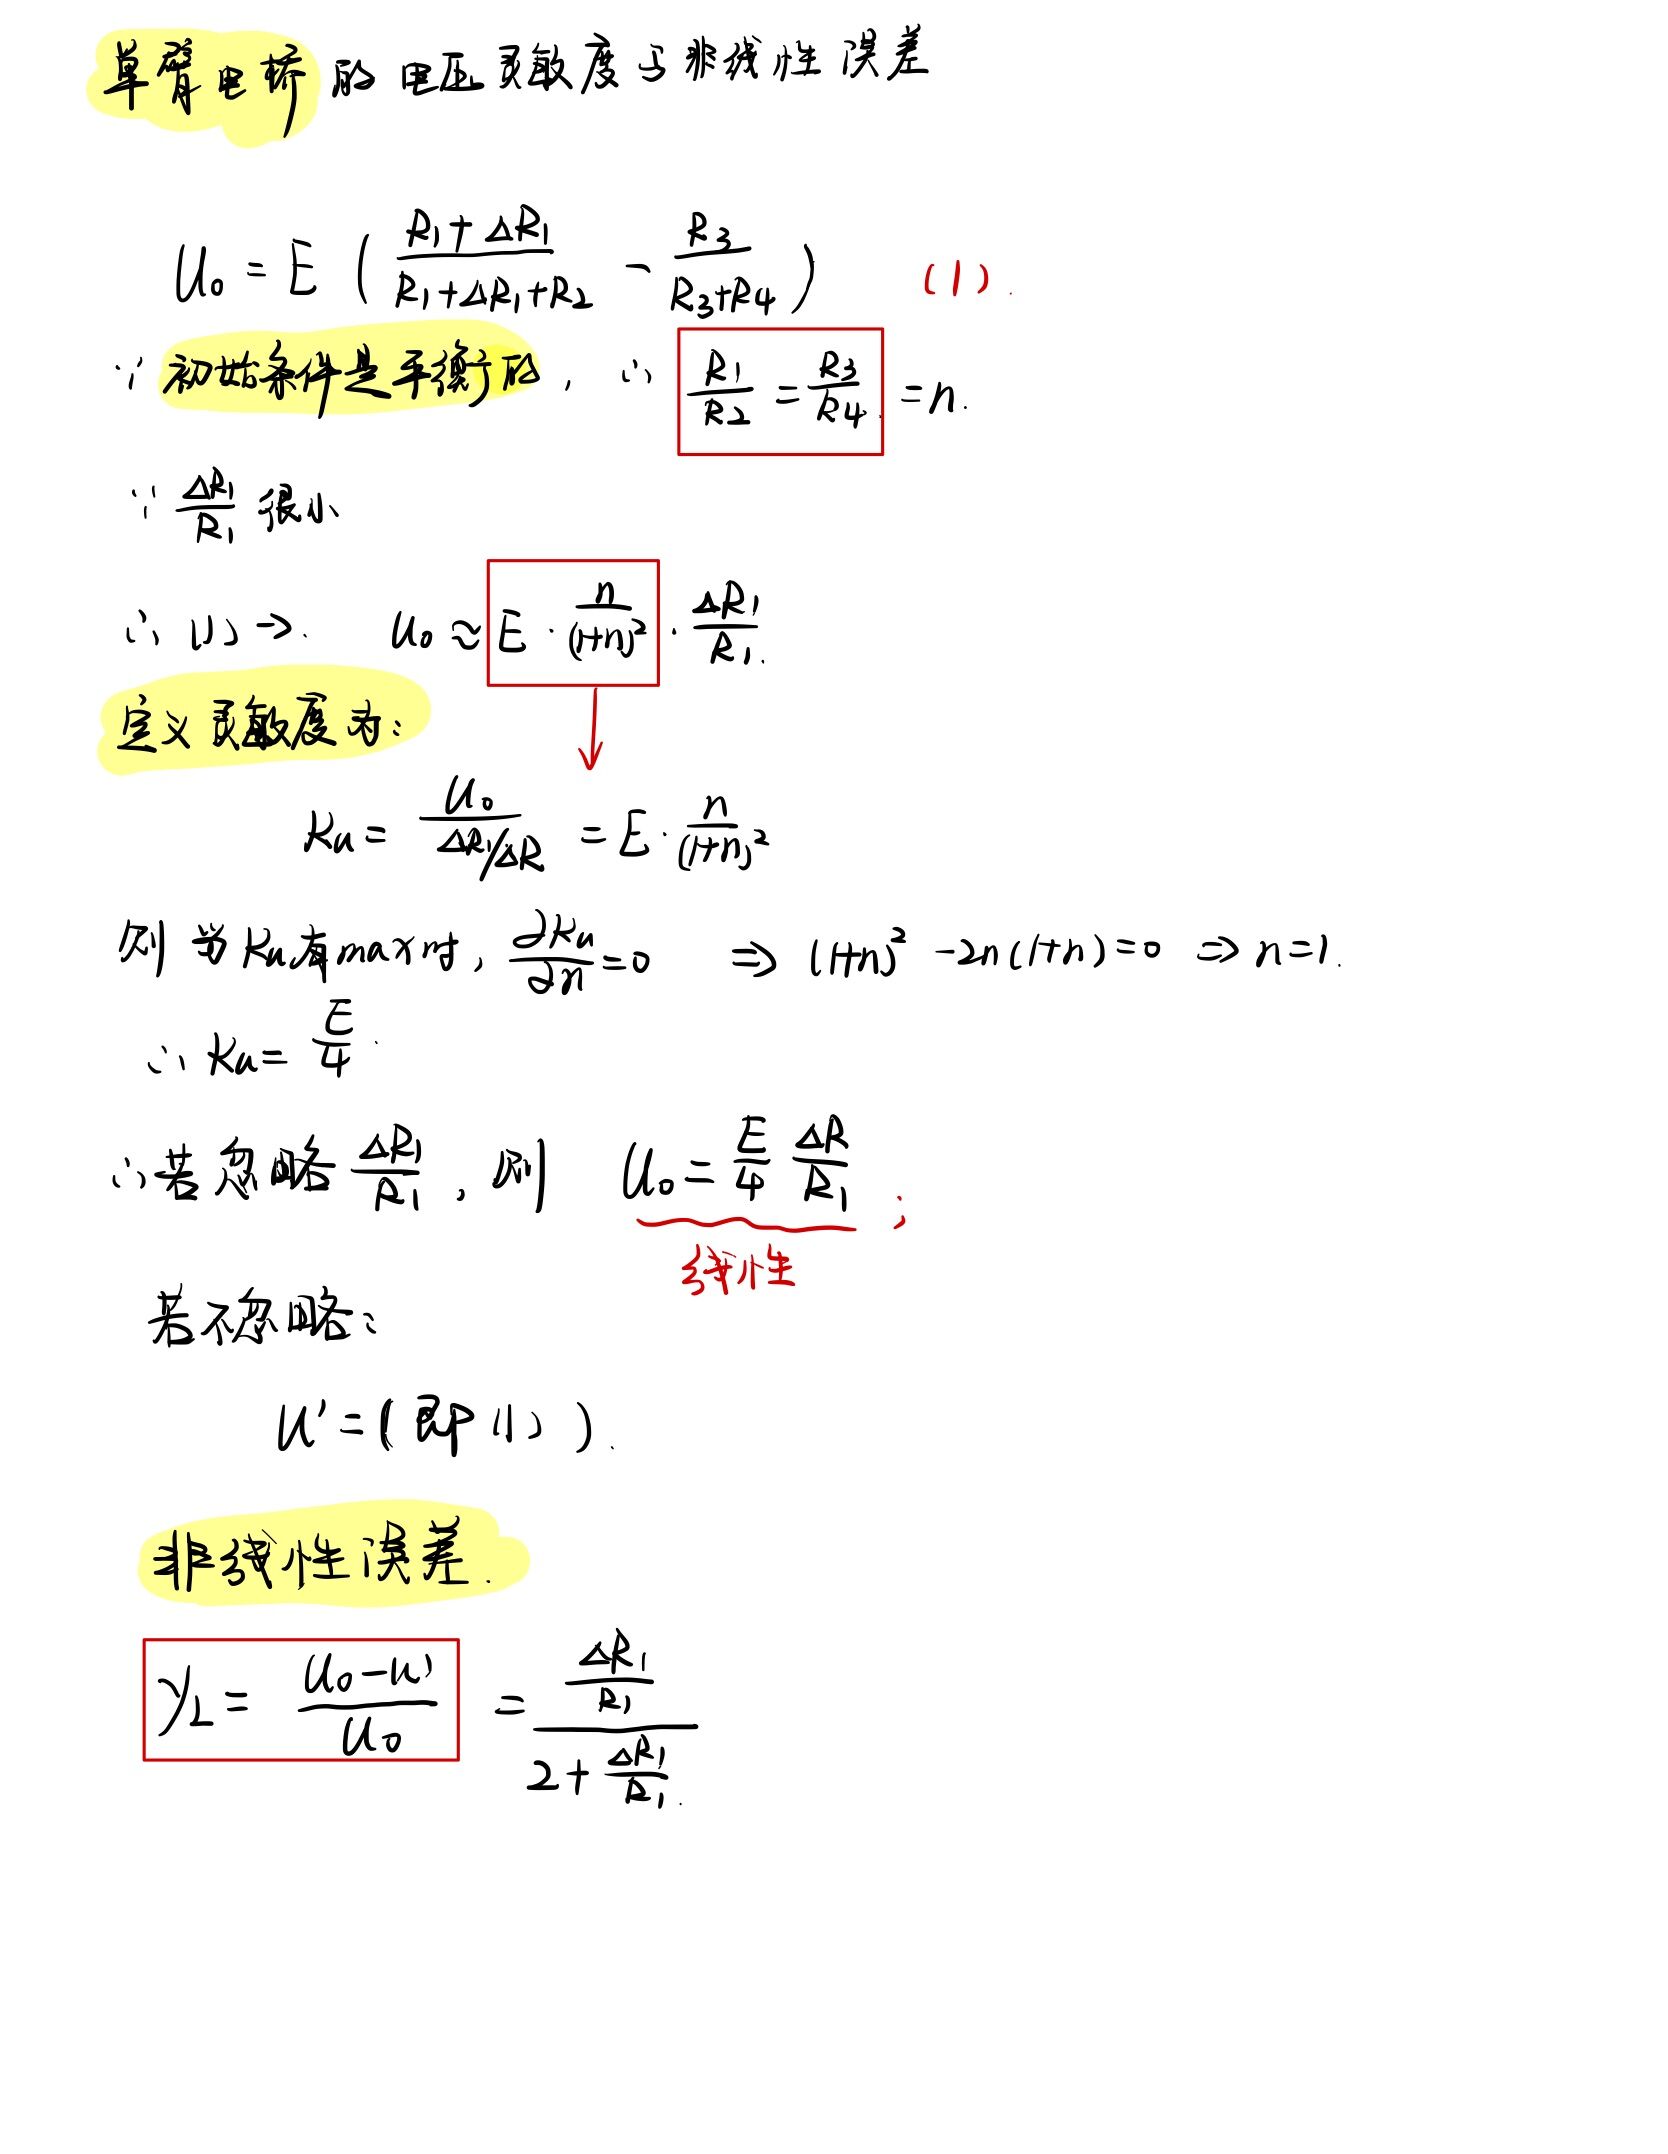 单臂电桥的电压灵敏度与非线性误差
U₀ = E ( (R₁+ΔR₁)/(R₁+ΔR₁+R₂) - R₃/(R₃+R₄) ) (1).
∵ 初始条件是平衡的, ∴ R₁/R₂ = R₃/R₄ = n.
∵ ΔR₁/R₁ 很小
∴ (1) → U₀ ≈ E · n/(1+n)² · ΔR₁/R₁.
定义灵敏度为:
Ku = U₀/(ΔR₁/ΔR) = E · n/(1+n)²
则当Ku有max时, ∂Ku/∂n = 0 ⇒ (1+n)² - 2n(1+n) = 0 ⇒ n=1.
∴ Ku = E/4.
∴ 若忽略 ΔR₁/R₁, 则 U₀ = E/4 ΔR/R₁ ;
线性
若不忽略:
U' = (即(1)).
非线性误差.
γL = (U₀-U')/U₀ = (ΔR₁/R₁)/(2 + ΔR₁/R₁).